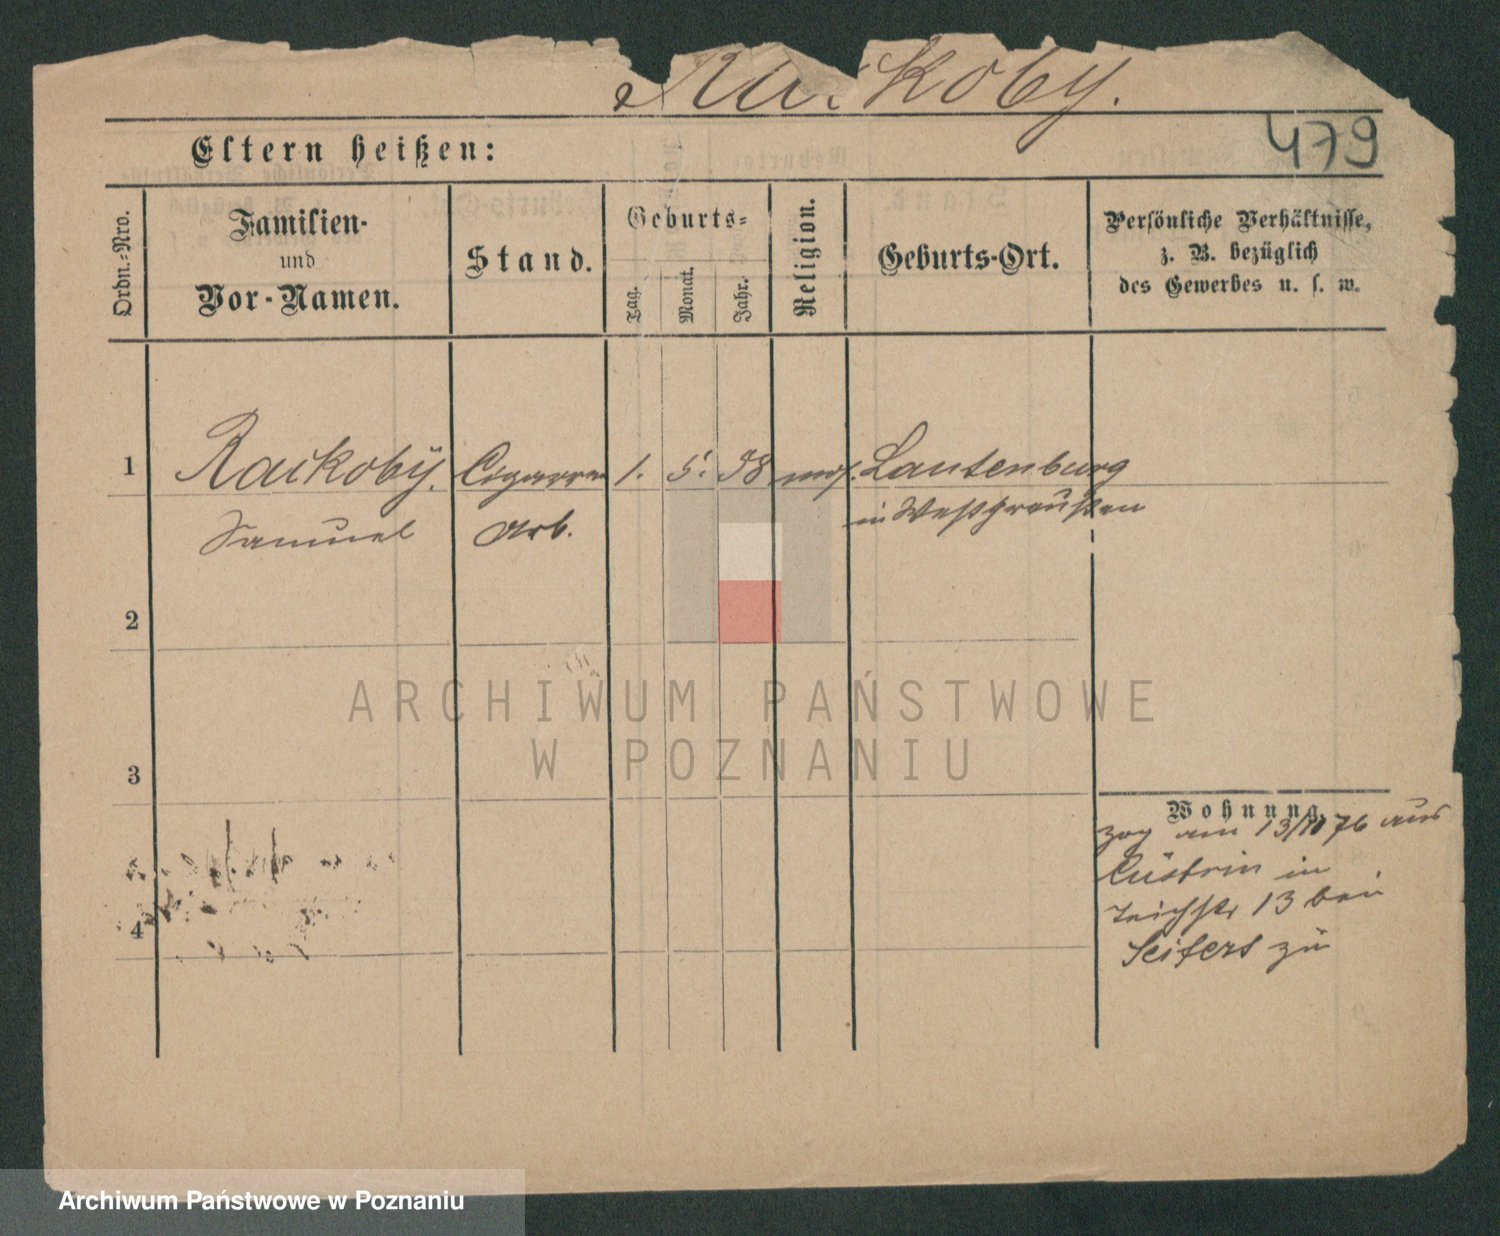 Raikoby.
479
Eltern heißen:
Ordn.-Nro.
Familien-
und
Vor-Namen.
Stand.
Geburts-
Tag.
Monat.
Jahr.
Religion.
Geburts-Ort.
Persönliche Verhältnisse,
z. B. bezüglich
des Gewerbes u. s. w.
1
Raikoby. Cigarren 1. 5. 58 mos. Lautenburg
Samuel Arb. in Westpreußen
2
3
4
Wohnung.
zog am 13/10 76 aus
Cüstrin in
Teichstr 13 bei
Seifert zu
ARCHIWUM PAŃSTWOWE
W POZNANIU
Archiwum Państwowe w Poznaniu